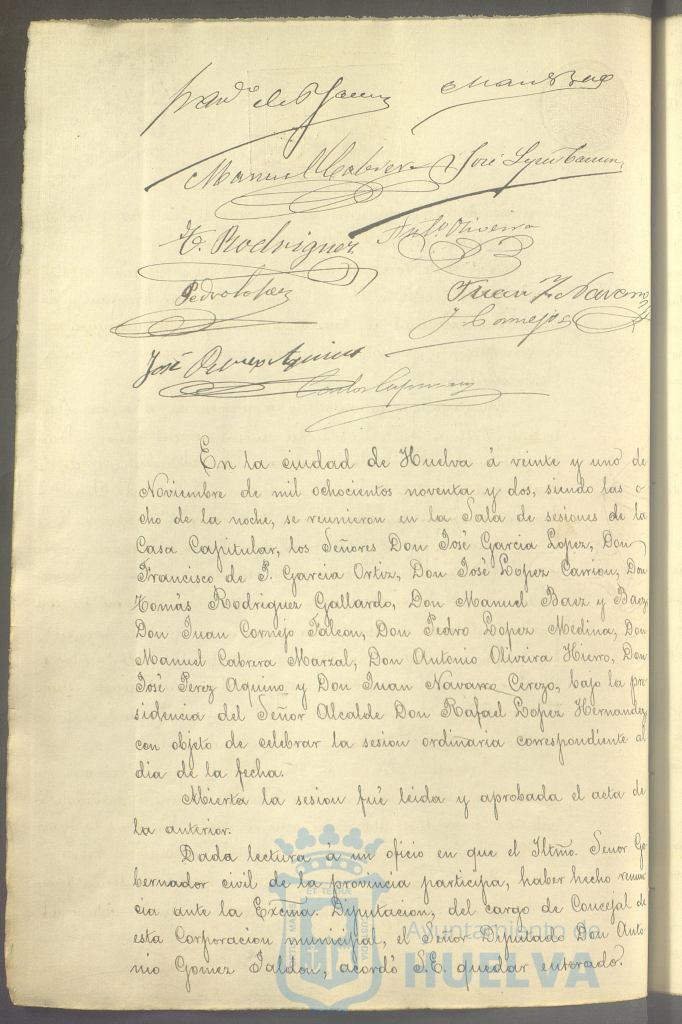 Fran.co de P. Garcia
Man. Baez
Manuel Cabrera José Lopez Carrion
T. Rodriguez Ant.o Oliveira
Pedro Lopez
Juan Navarro
J. Cornejo
José Perez Aquino
En la ciudad de Huelva á veinte y uno de
Noviembre de mil ochocientos noventa y dos, siendo las o
cho de la noche, se reunieron en la Sala de sesiones de la
Casa Capitular, los Señores Don José Garcia Lopez, Don
Francisco de P. Garcia Ortiz, Don José Lopez Carrion, Don
Tomás Rodriguez Gallardo, Don Manuel Baez y Baez,
Don Juan Cornejo Falcon, Don Pedro Lopez Medina, Don
Manuel Cabrera Marzal, Don Antonio Oliveira Hierro, Don
José Perez Aquino y Don Juan Navarro Cerezo, bajo la pre
sidencia del Señor Alcalde Don Rafael Lopez Hernandez
con objeto de celebrar la sesion ordinaria correspondiente al
dia de la fecha.
Abierta la sesion fué leida y aprobada el acta de
la anterior.
Dada lectura á un oficio en que el Iltmo. Señor Go
bernador civil de la provincia participa, haber hecho renun
cia ante la Excma. Diputacion, del cargo de Concejal de
esta Corporacion municipal, el Señor Diputado Don Anto
nio Gomez Jaldon, acordó S.E. quedar enterado.
Ayuntamiento de
HUELVA